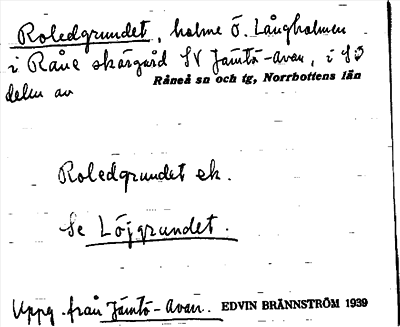 Roledgrundet, holme Ö. Långholmen
i Råne skärgård SV Jämtö-avan, i SÖ
Råneå sn och tg, Norrbottens län
delen av
Roledgrundet sk.
Se Löjgrundet.
Uppg. från Jämtö-avan. EDVIN BRÄNNSTRÖM 1939